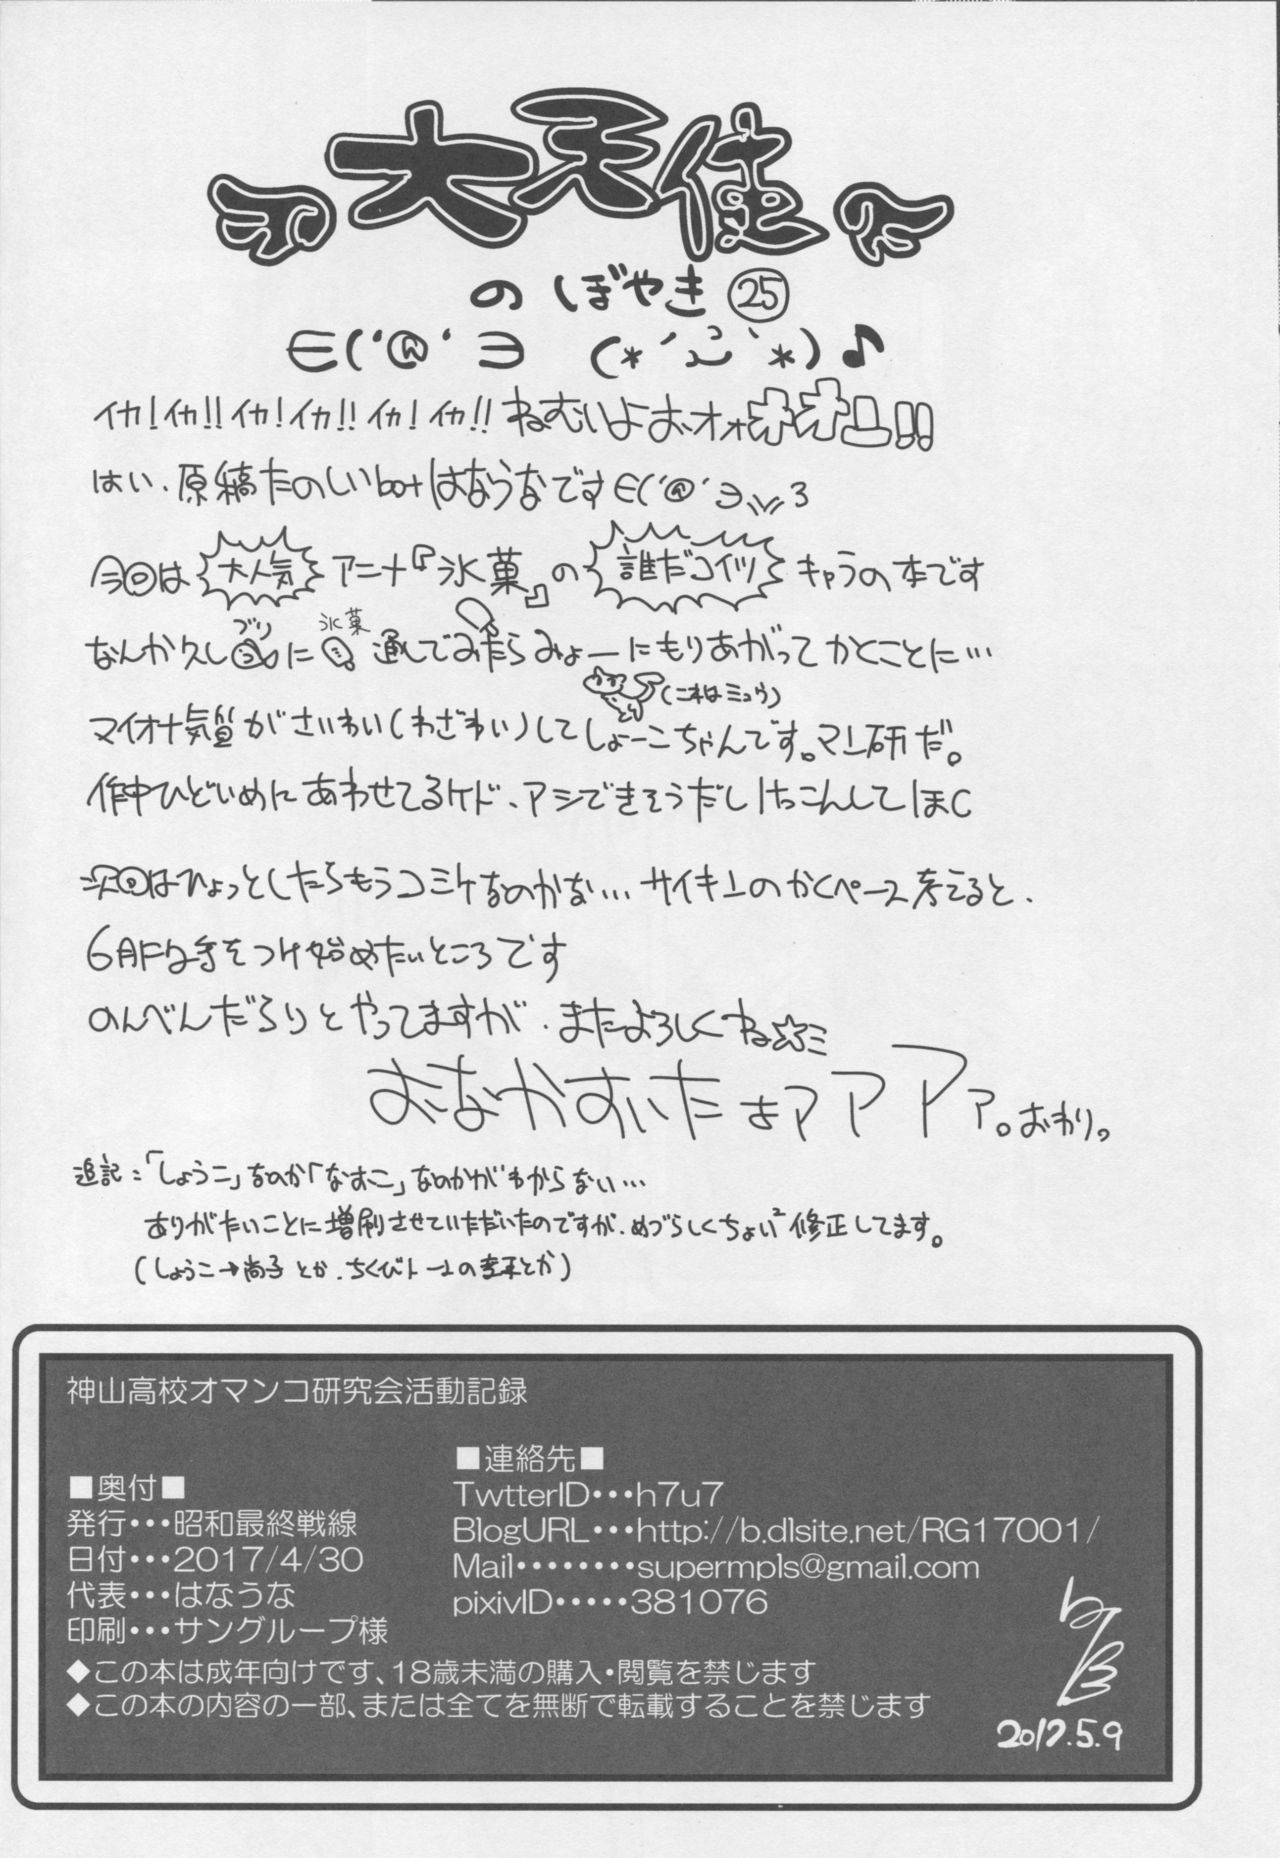 大天使
のぼやき㉕
∈('@'∋ (*´ω`*)♪
イカ!イカ!!イカ!イカ!!イカ!イカ!!ねむいよおオォオオー!!
はい、原稿たのしいbotはなうなです∈('@'∋ 3
今回は大人気アニメ『氷菓』の誰だコイツキャラの本です
なんか久しぶりに氷菓通してみたらみょーにもりあがってかくことに…
(これはミュウ)
マイオナ気質がさいわい(わざわい)してしょーこちゃんです。マン研だ。
作中ひどいめにあわせてるケド、アシできそうだしけっこんしてほC
次回はひょっとしたらもうコミケなのかな…サイキンのかくペース考えると、
6月には手をつけ始めたいところです
のんべんだらりとやってますが、またよろしくね☆ミ
おなかすいたよアアアァ。おわり。
追記:「しょうこ」なのか「なおこ」なのかがわからない…
ありがたいことに増刷させていただいたのですが、めづらしくちょい²修正してます。
(しょうこ→尚子とか、ちくびトーンの変更とか)
神山高校オマンコ研究会活動記録
■奥付■
発行・・・昭和最終戦線
日付・・・2017/4/30
代表・・・はなうな
印刷・・・サングループ様
■連絡先■
TwtterID・・・h7u7
BlogURL・・・http://b.dlsite.net/RG17001/
Mail・・・・・・・・supermpls@gmail.com
pixivID・・・・・381076
◆この本は成年向けです、18歳未満の購入・閲覧を禁じます
◆この本の内容の一部、または全てを無断で転載することを禁じます
2017.5.9